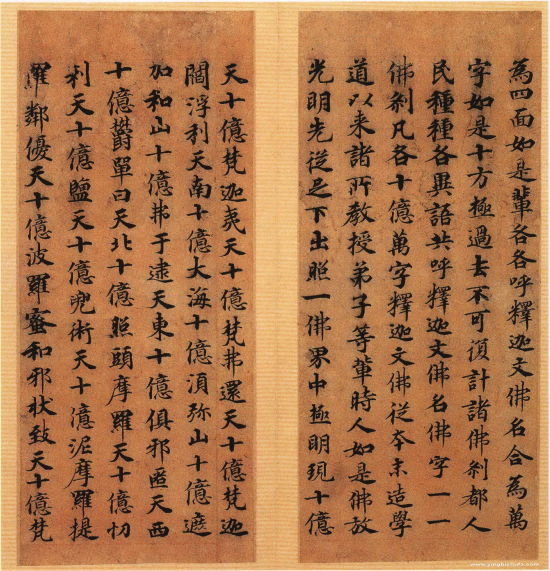 為四面如是輩各各呼釋迦文佛名合為萬
字如是十方極過去不可復計諸佛剎都人
民種種各異語共呼釋迦文佛名佛字一一
佛剎凡各十億萬字釋迦文佛從本末造學
道以来諸所教授弟子等輩時人如是佛放
光明先從足下出照一佛界中極明現十億
天十億梵迦夷天十億梵弗還天十億梵迦
閻浮利天南十億大海十億湏弥山十億遮
加和山十億弗于逮天東十億俱邪匿天西
十億欝單曰天北十億照頭摩羅天十億忉
利天十億鹽天十億兜術天十億泥摩羅提
羅鄰優天十億波羅蜜和邪状致天十億梵
www.yingbishufa.com